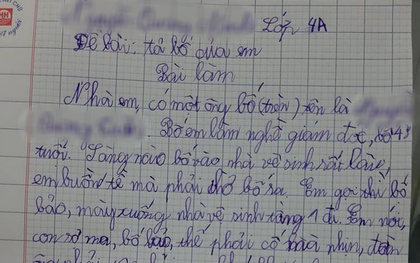 Lớp 4A
Đề bài: tả bố của em
Bài làm
Nhà em, có một ông bố (trên) tên là
Bố em làm nghề giám đốc, bố 45
tuổi. Sáng nào bố vào nhà vệ sinh rất lâu,
em buồn tè mà phải chờ bố ra. Em gọi thì bố
bảo, mày xuống nhà vệ sinh tầng 1 đi. Em nói,
con sợ ma, bố bảo, thế phải cố mà nhịn, đàn